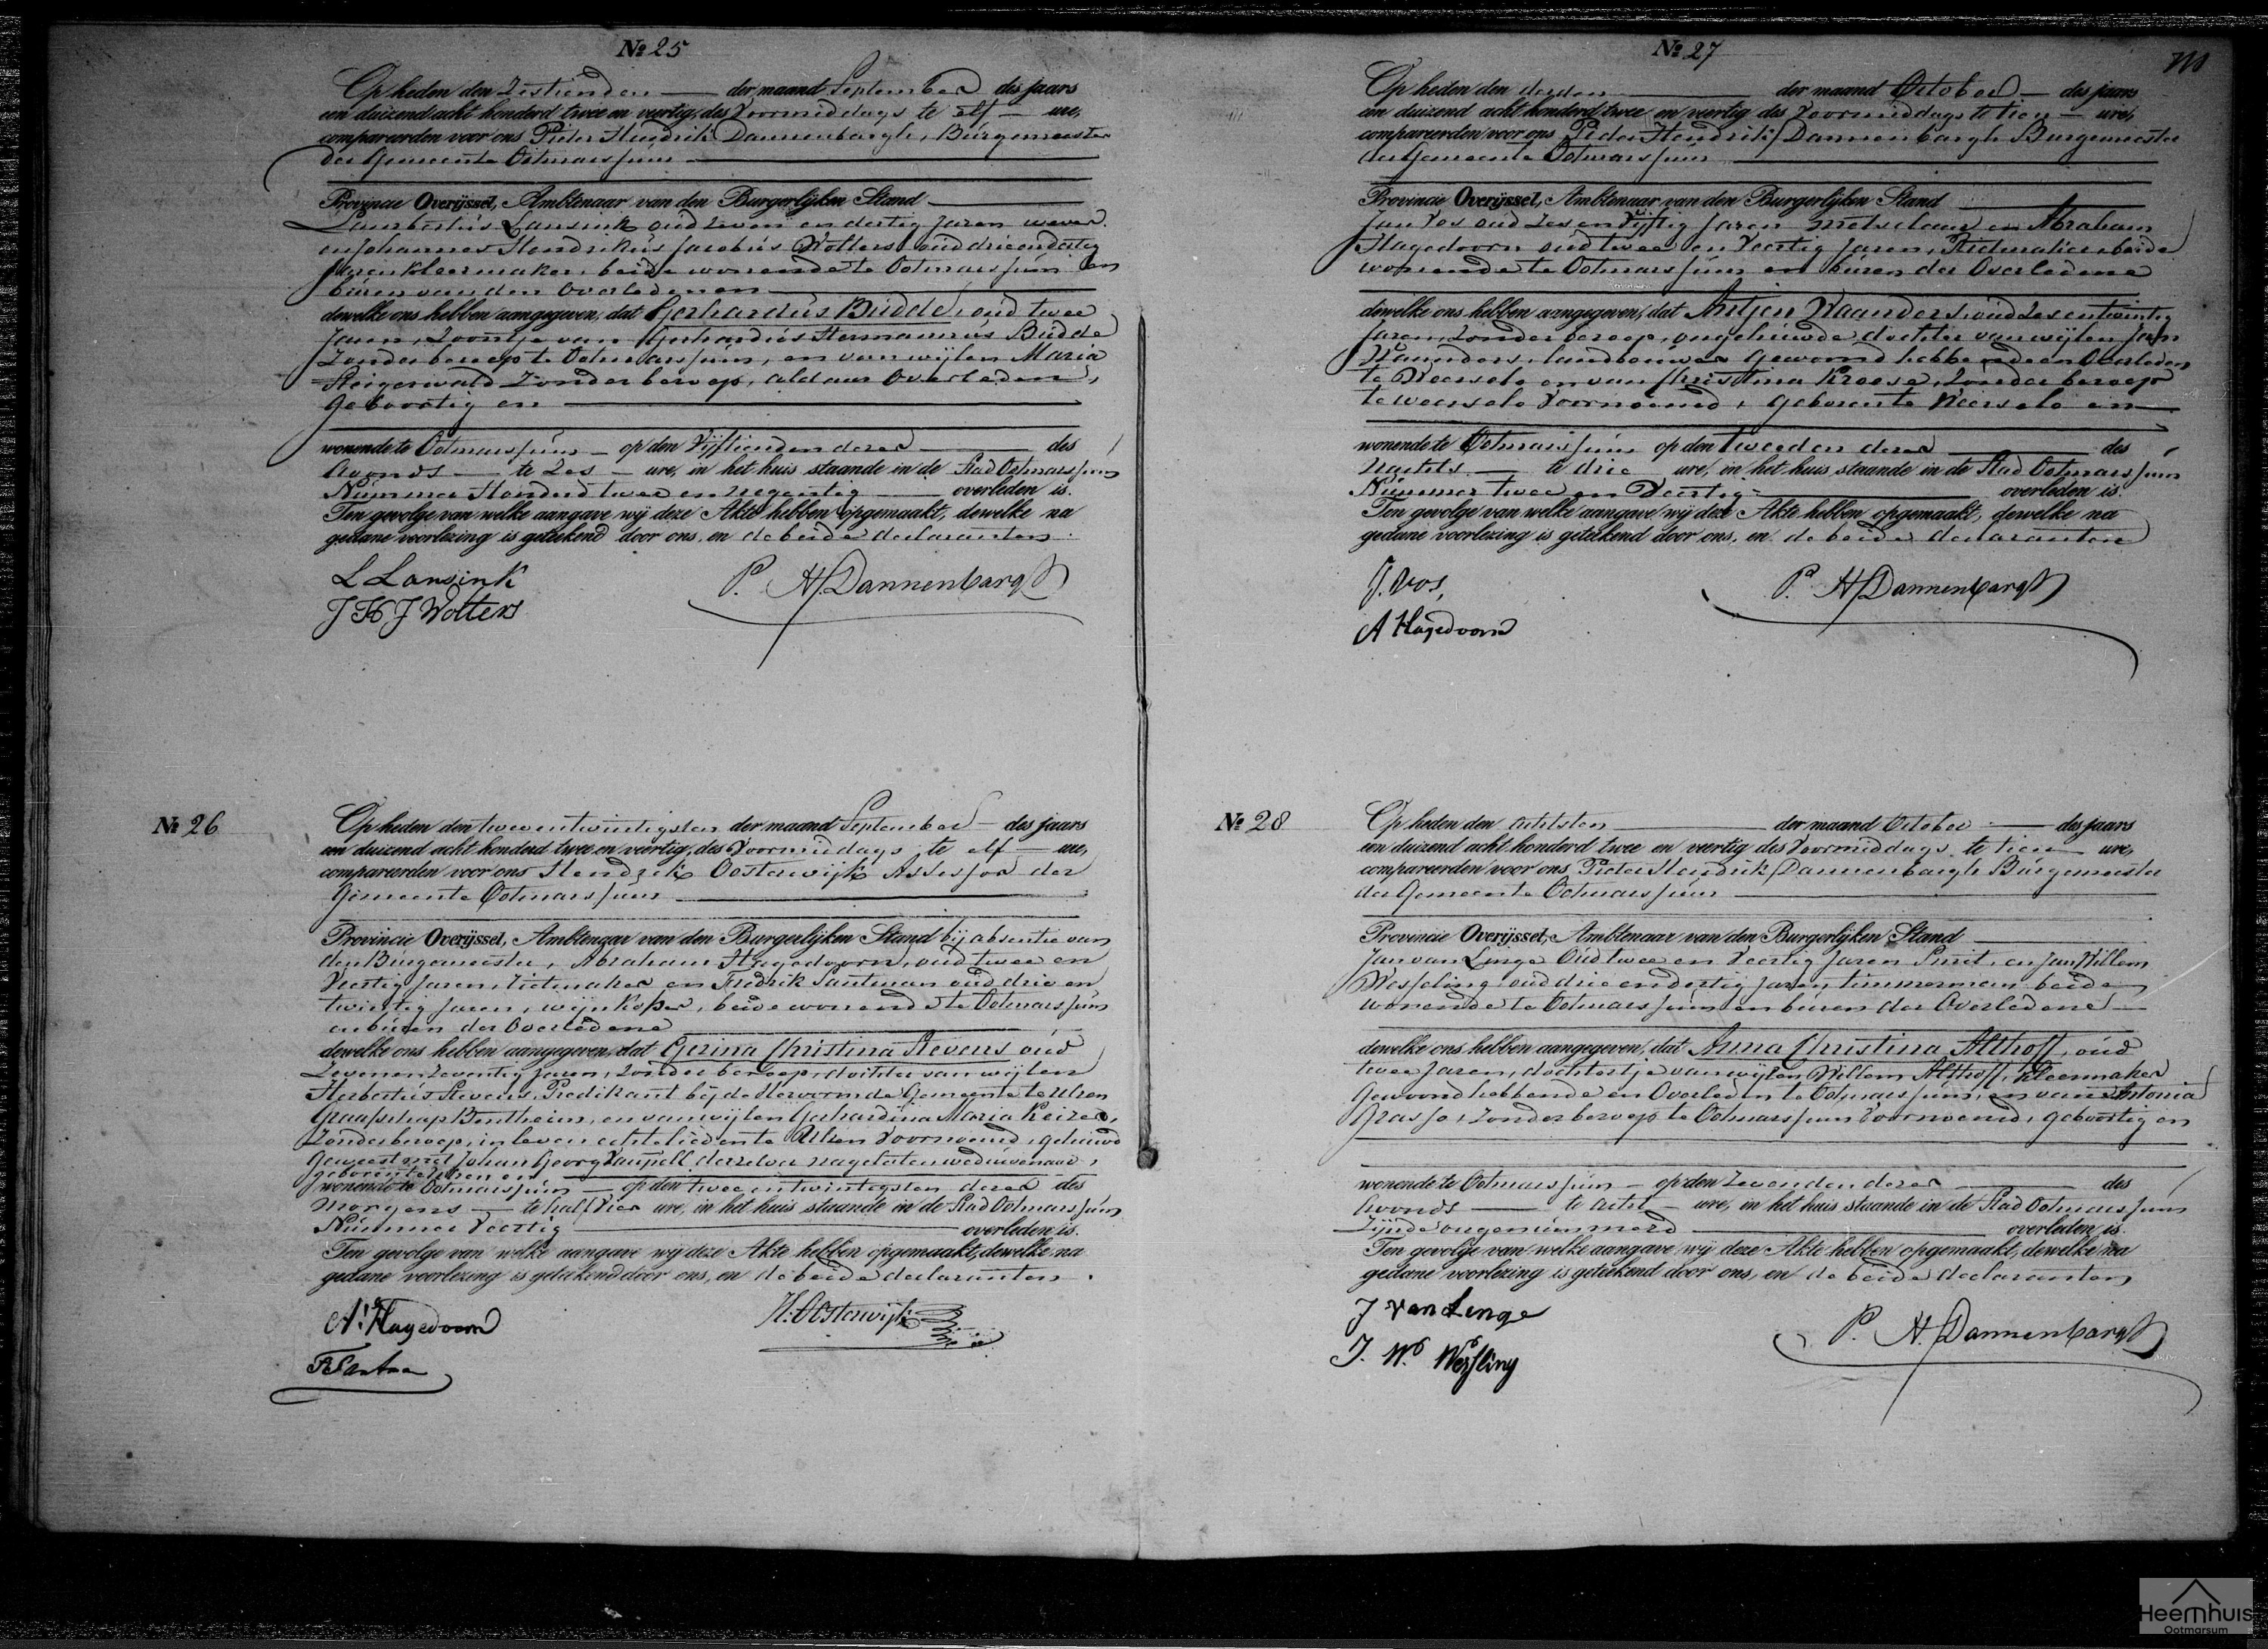 № 25
Op heden den Zestienden der maand September des jaars
een duizend acht honderd twee en veertig, des Voormiddags te elf ure,
compareerden voor ons Pieter Hendrik Dannenbargh, Burgemeester
der Gemeente Ootmarssum
Provincie Overijssel, Ambtenaar van den Burgerlijken Stand
Lambertus Lansink oud zeven en dertig Jaren wever
en Johannes Hendrikus Jacobus Wolters oud drie en dertig
Jaren Kleermaker, beide wonende te Ootmarssum en
buren van den Overledenen
dewelke ons hebben aangegeven, dat Gerhardus Budde, oud twee
Jaren, Zoontje van Gerhardus Hermannus Budde
Zonder beroep te Ootmarssum, en van wijlen Maria
Steigerwald Zonder beroep, aldaar Overleden,
Geboortig en
wonende te Ootmarssum op den Vijftienden dezer des
Avonds te Zes ure, in het huis staande in de Stad Ootmarssum
Nummer Honderd twee en negentig overleden is.
Ten gevolge van welke aangave wij deze Akte hebben opgemaakt, dewelke na
gedane voorlezing is geteekend door ons, en de beide declaranten.
L Lansink
P. H. Dannenbargh
J H J Wolters
№ 26
Op heden den twee en twintigsten der maand September des jaars
een duizend acht honderd twee en veertig, des Voormiddags te elf ure,
compareerden voor ons Hendrik Oosterwijk Assessor der
Gemeente Ootmarssum
Provincie Overijssel, Ambtenaar van den Burgerlijken Stand bij absentie van
den Burgemeester, Abraham Hagedoorn, oud twee en
Veertig Jaren, en Fredrik Santman oud drie en
twintig Jaren, wijnkoper, beide wonende te Ootmarssum
en buren der Overledene
dewelke ons hebben aangegeven, dat Gerina Christina Stevens oud
Zeven en Zeventig Jaren, Zonder beroep, dochter van wijlen
Herbertus Stevens, Predikant bij de Hervormde Gemeente te Ulsen
Graafschap Bentheim, en van wijlen Gerhardina Maria Keizer,
Zonder beroep, in leven echtelieden te Ulsen Voornoemd, gehuwd
Geweest met Johan Georg Vaupell derzelver nagelaten weduwenaar,
geboren te Ulsen en
wonende te Ootmarssum op den twee en twintigsten dezer des
Morgens te half vier ure, in het huis staande in de Stad Ootmarssum
Nummer Veertig overleden is.
Ten gevolge van welke aangave wij deze Akte hebben opgemaakt, dewelke na
gedane voorlezing is geteekend door ons, en de beide declaranten.
A. Hagedoorn
H. Oosterwijk
№ 27
Op heden den derden der maand October des jaars
een duizend acht honderd twee en veertig des Voormiddags te tien ure,
compareerden voor ons Pieter Hendrik Dannenbargh Burgemeester
der Gemeente Ootmarssum
Provincie Overijssel, Ambtenaar van den Burgerlijken Stand
Jan Vos oud Zes en Vijftig Jaren metselaar en Abraham
Hagedoorn oud twee en Veertig Jaren, beide
wonende te Ootmarssum en buren der Overledene
dewelke ons hebben aangegeven, dat Antjen Waanders, oud Zes en twintig
Jaren, Zonder beroep, ongehuwde dochter van wijlen Jan
Waanders, landbouwer Gewoond hebbende en Overleden
te Weerselo en van Christina Kroese, Zonder beroep
te Weerselo Voornoemd, geboren te Weerselo en
wonende te Ootmarssum op den tweeden dezer des
Nachts te drie ure, in het huis staande in de Stad Ootmarssum
Nummer twee en Veertig overleden is.
Ten gevolge van welke aangave wij deze Akte hebben opgemaakt, dewelke na
gedane voorlezing is geteekend door ons, en de beide declaranten
J. Vos,
P. H. Dannenbargh
A Hagedoorn
№ 28
Op heden den achtsten der maand October des jaars
een duizend acht honderd twee en veertig des Voormiddags te tien ure,
compareerden voor ons Pieter Hendrik Dannenbargh Burgemeester
der Gemeente Ootmarssum
Provincie Overijssel, Ambtenaar van den Burgerlijken Stand
Jan van Linge Oud twee en Veertig Jaren Smit, en Jan Willem
Wesseling oud drie en dertig Jaren timmerman beide
wonende te Ootmarssum en buren der Overledene
dewelke ons hebben aangegeven, dat Anna Christina Althoff, oud
twee Jaren, dochtertje van wijlen Willem Althoff, Kleermaker
Gewoond hebbende en Overleden te Ootmarssum, en van Antonia
Grasse, Zonder beroep te Ootmarssum Voornoemd, Geboortig en
wonende te Ootmarssum op den Zevenden dezer des
Avonds te acht ure, in het huis staande in de Stad Ootmarssum
Zijnde ongenummerd overleden is.
Ten gevolge van welke aangave wij deze Akte hebben opgemaakt, dewelke na
gedane voorlezing is geteekend door ons, en de beide declaranten
J van Linge
P. H. Dannenbargh
J. W. Wesseling
Heemhuis
Ootmarsum